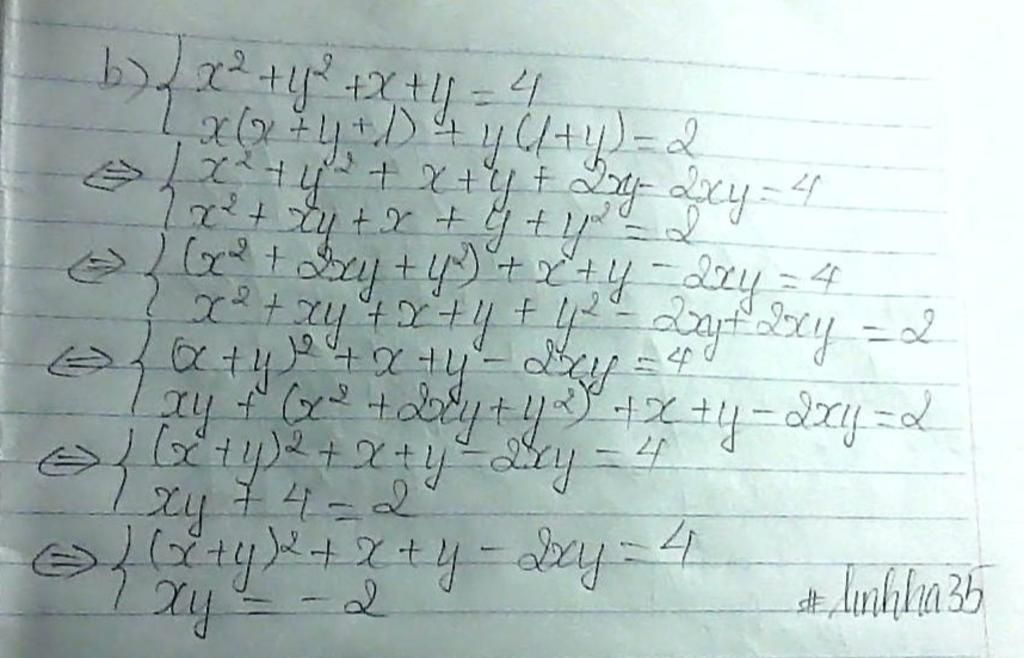 b) { x² + y² + x + y = 4
x(x + y + 1) + y(1 + y) = 2
⇔ { x² + y² + x + y + 2xy - 2xy = 4
x² + xy + x + y + y² = 2
⇔ { (x² + 2xy + y²) + x + y - 2xy = 4
x² + xy + x + y + y² - 2xy + 2xy = 2
⇔ { (x + y)² + x + y - 2xy = 4
xy + (x² + 2xy + y²) + x + y - 2xy = 2
⇔ { (x + y)² + x + y - 2xy = 4
xy + 4 = 2
⇔ { (x + y)² + x + y - 2xy = 4
xy = - 2
# linhha35